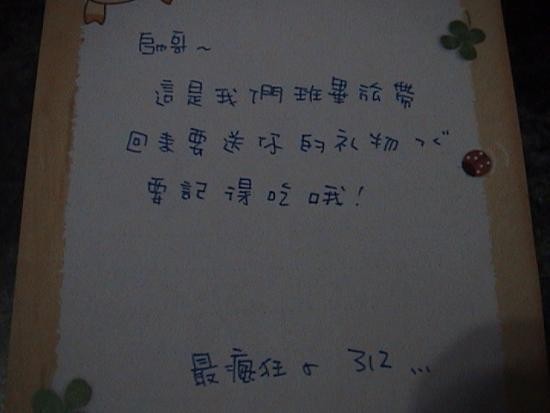 帥哥~
這是我們班畢旅帶
回來要送你的礼物^^
要記得吃哦!
最瘋狂ㄉ 312...